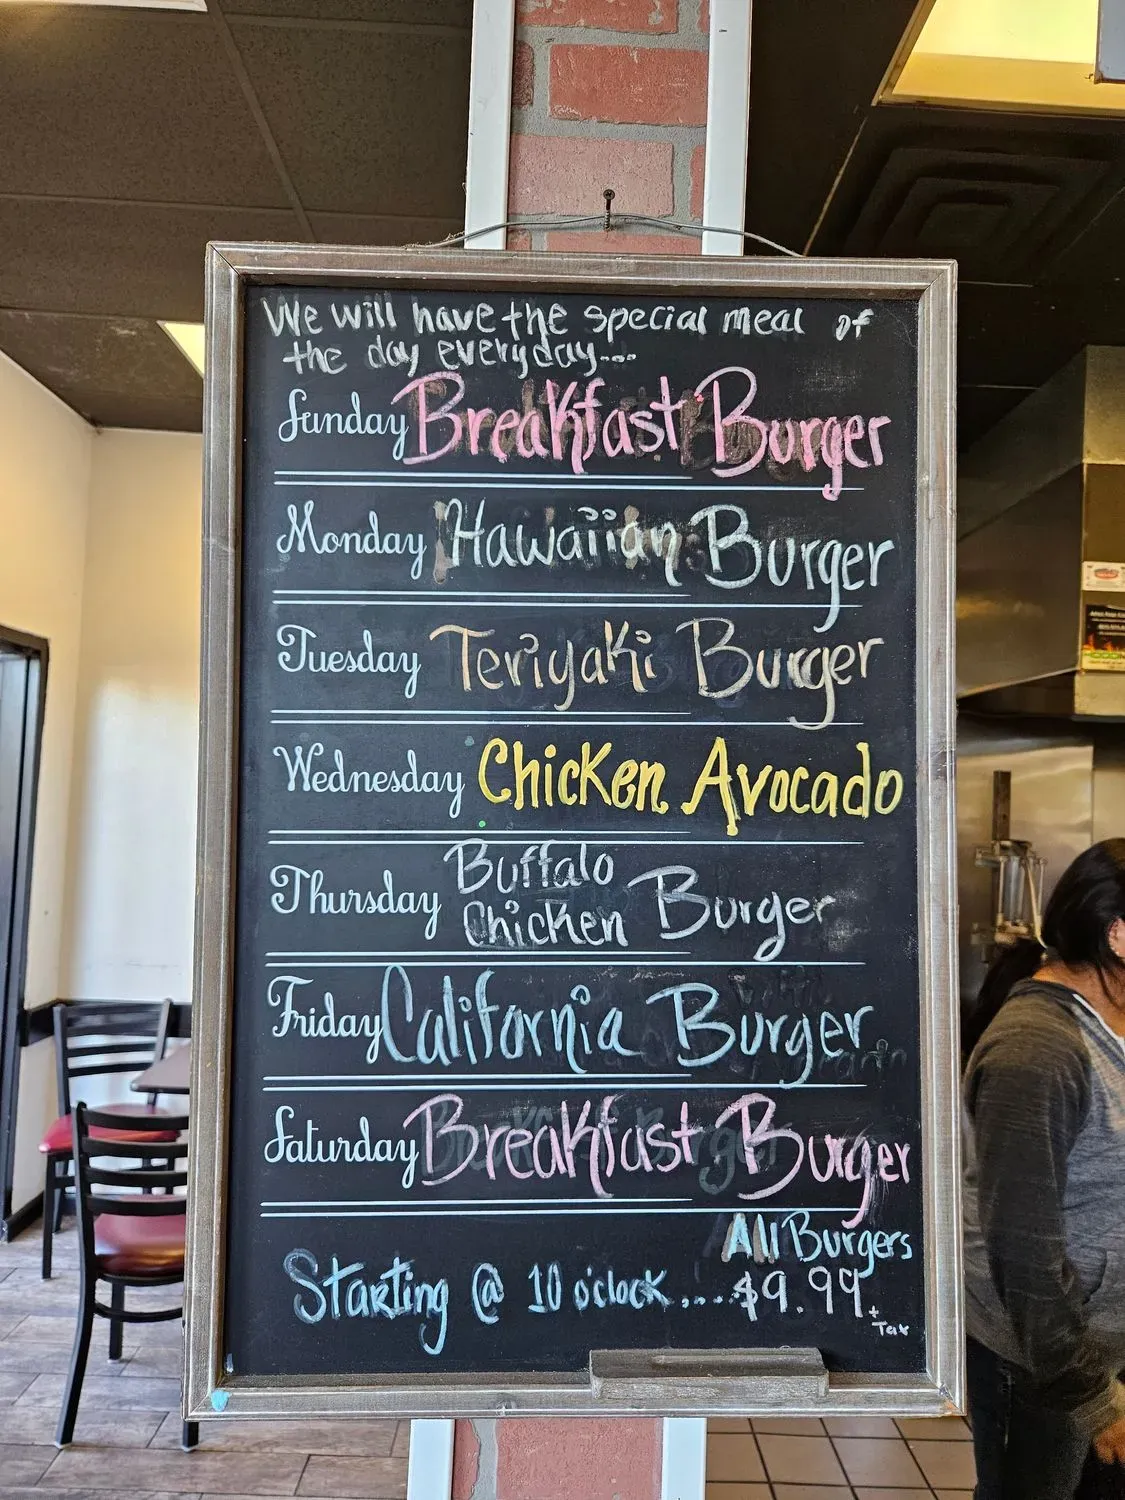 We will have the special meal of
the day everyday....
Sunday Breakfast Burger
Monday Hawaiian Burger
Tuesday Teriyaki Burger
Wednesday Chicken Avocado
Thursday Buffalo Chicken Burger
Friday California Burger
Saturday Breakfast Burger
All Burgers
Starting @ 10 o'clock.....$9.99
+ Tax